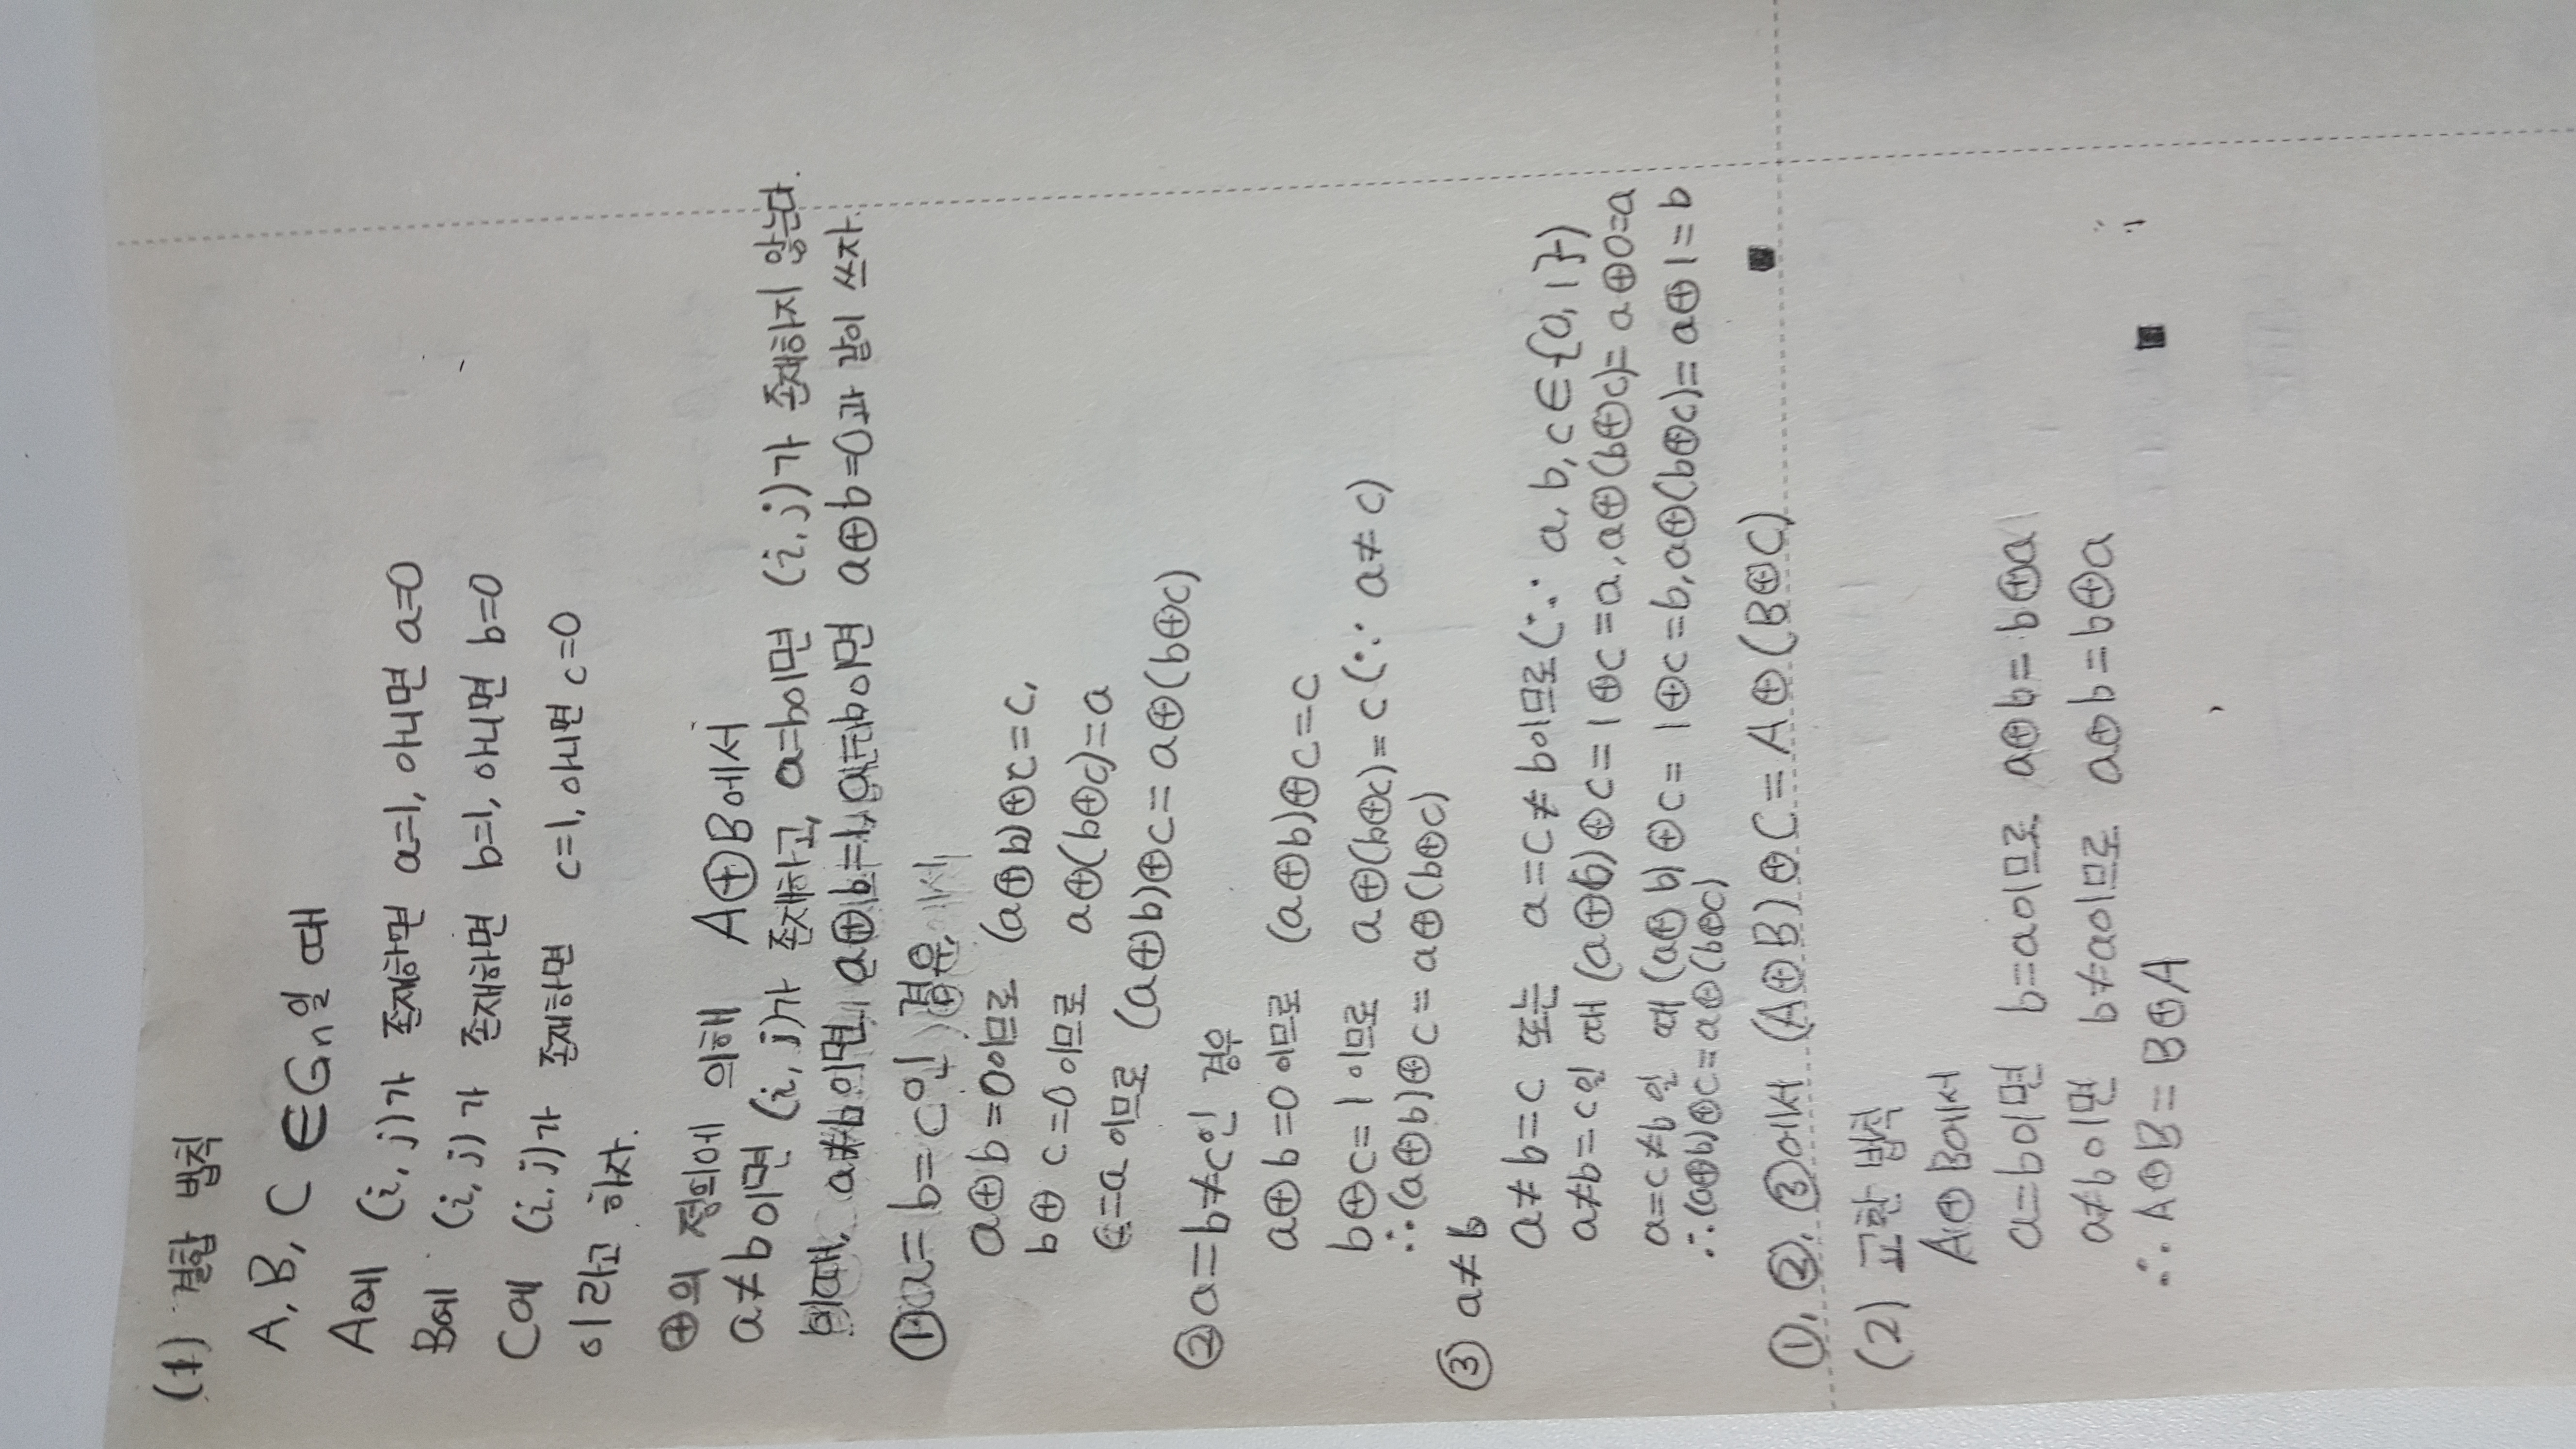 (1) 결합 법칙
A, B, C ∈Gn일 때
A에 (i, j)가 존재하면 a=1, 아니면 a=0
B에 (i, j)가 존재하면 b=1, 아니면 b=0
C에 (i, j)가 존재하면 c=1, 아니면 c=0
이라고 하자.
⊕의 정의에 의해 A⊕B에서
a≠b이면 (i, j)가 존재하고, a=b이면 (i, j)가 존재하지 않는다.
이때, a≠b이면 a⊕b=1, a=b이면 a⊕b=0과 같이 쓰자.
① a=b=c인 경우,
a⊕b=0이므로 (a⊕b)⊕c=c,
b⊕c=0이므로 a⊕(b⊕c)=a
c=a이므로 (a⊕b)⊕c=a⊕(b⊕c)
② a=b≠c인 경우
a⊕b=0이므로 (a⊕b)⊕c=c
b⊕c=1이므로 a⊕(b⊕c)=c (∵ a≠c)
∴(a⊕b)⊕c=a⊕(b⊕c)
③ a≠b
a≠b=c 또는 a=c≠b이므로 (∵ a, b, c∈{0, 1})
a≠b=c일 때 (a⊕b)⊕c=1⊕c=a, a⊕(b⊕c)=a⊕0=a
a=c≠b일 때 (a⊕b)⊕c=1⊕c=b, a⊕(b⊕c)=a⊕1=b
∴(a⊕b)⊕c=a⊕(b⊕c)
①, ②, ③에서 (A⊕B)⊕C=A⊕(B⊕C) ■
(2) 교환 법칙
A⊕B에서
a=b이면 b=a이므로 a⊕b=b⊕a
a≠b이면 b≠a이므로 a⊕b=b⊕a
∴ A⊕B=B⊕A ■